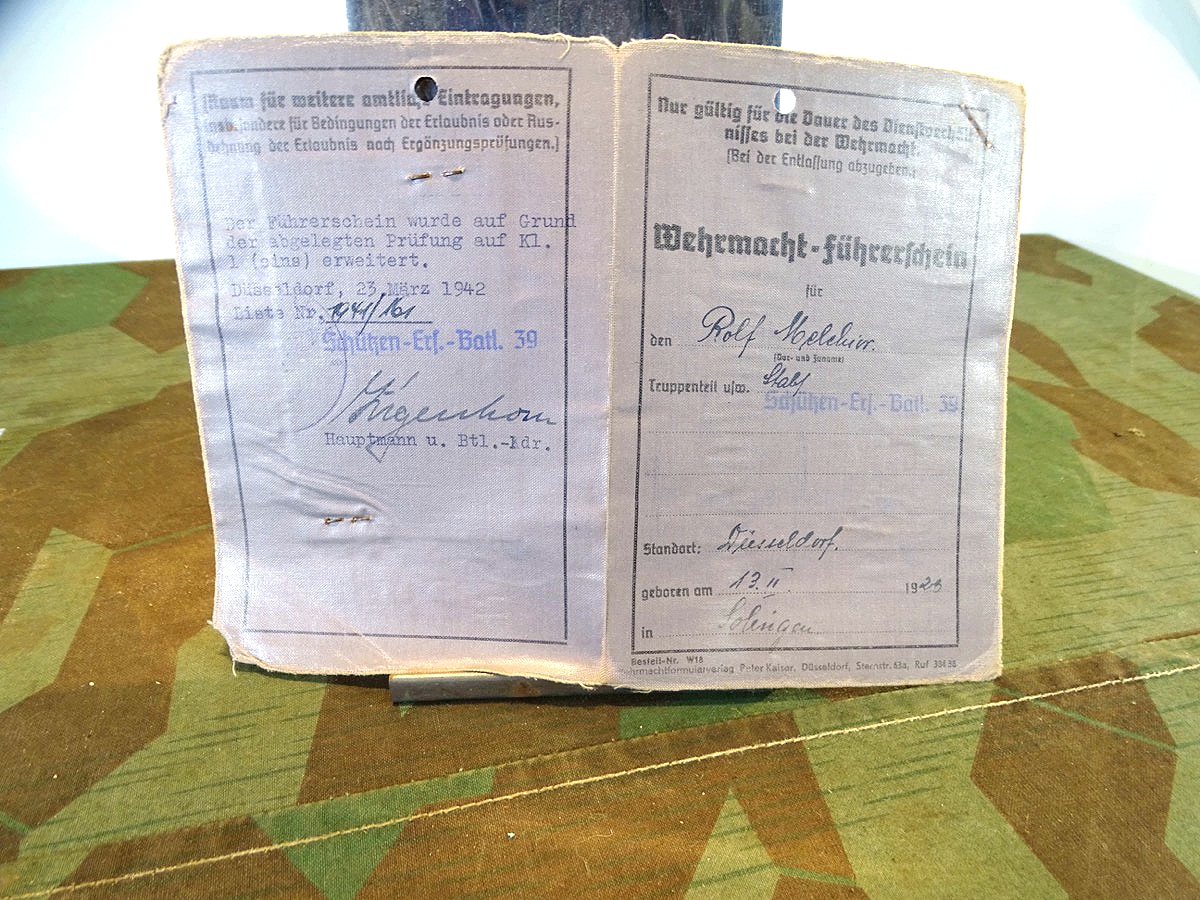 [Raum für weitere amtliche Eintragungen,
insbesondere für Bedingungen der Erlaubnis oder Aus-
dehnung der Erlaubnis nach Ergänzungsprüfungen.]
Der Führerschein wurde auf Grund
der abgelegten Prüfung auf Kl.
1 (eins) erweitert.
Düsseldorf, 23.März 1942
Liste Nr. 1941/161
Schützen-Ers.-Batl. 39
Hauptmann u. Btl.-Kdr.
Nur gültig für die Dauer des Dienstverhält-
nisses bei der Wehrmacht.
[Bei der Entlassung abzugeben.]
Wehrmacht-Führerschein
für
den Rolf Melchior.
(Vor- und Zuname)
Truppenteil usw. Stab
Schützen-Ers.-Batl. 39
Standort: Düsseldorf.
geboren am 13. II. 1923
in Solingen
Bestell-Nr. W18
hrmachtformularverlag Peter Kaiser, Düsseldorf, Sternstr. 63a, Ruf 384 38